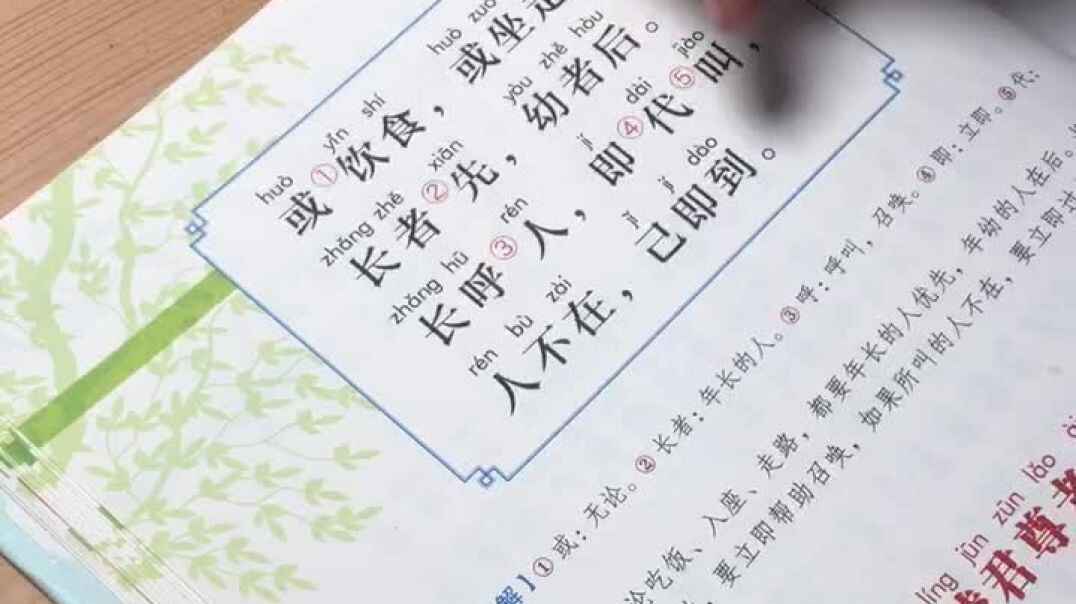 huò yǐn shí huò zuò
或①饮食，或坐走
zhǎng zhě xiān yòu zhě hòu
长者②先，幼者后。
zhǎng hū rén jí dài jiào
长呼③人，即④代⑤叫，
rén bù zài jǐ jí dào
人不在，己即到。
解】①或：无论。②长者：年长的人。③呼：呼叫，召唤。④即：立即。⑤代：
论吃饭、入座、走路，都要年长的人优先，年幼的人在后。
要立即帮助召唤，如果所叫的人不在，要立即过
líng jūn zūn lǎo
君尊老